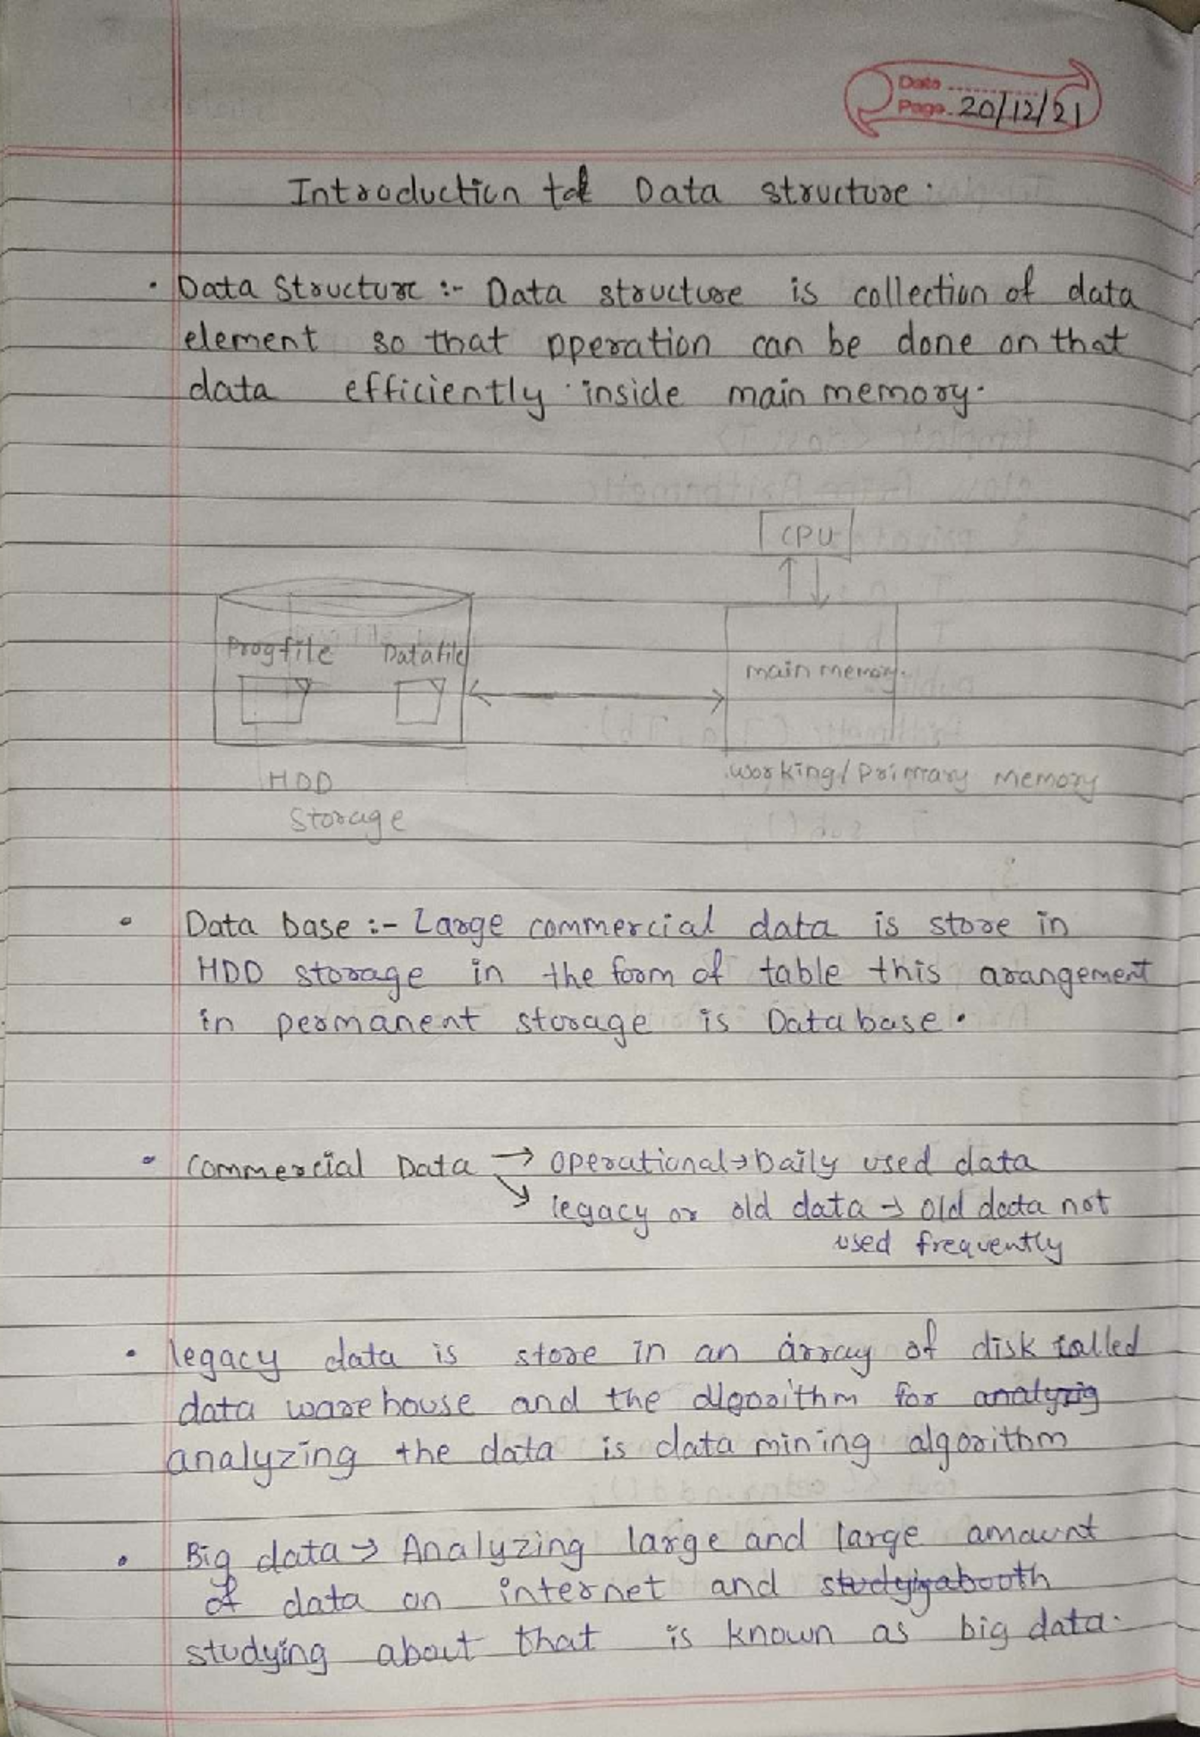 Date
Page. 20/12/21
Introduction to Data structure.
• Data Structure :- Data structure is collection of data
element so that operation can be done on that
data efficiently inside main memory.
CPU
Progfile Datafile
main memory.
HDD
Storage
working/Primary memory
• Data base :- Large commercial data is store in
HDD storage in the form of table this arangement
in permanent storage is Database.
• Commercial Data → Operational → Daily used data
↘ legacy or old data → old data not
used frequently
• legacy data is store in an array of disk called
data warehouse and the algorithm for analyzig
analyzing the data is data mining algorithm
• Big data → Analyzing large and large amount
of data on internet and
studying about that is known as big data.